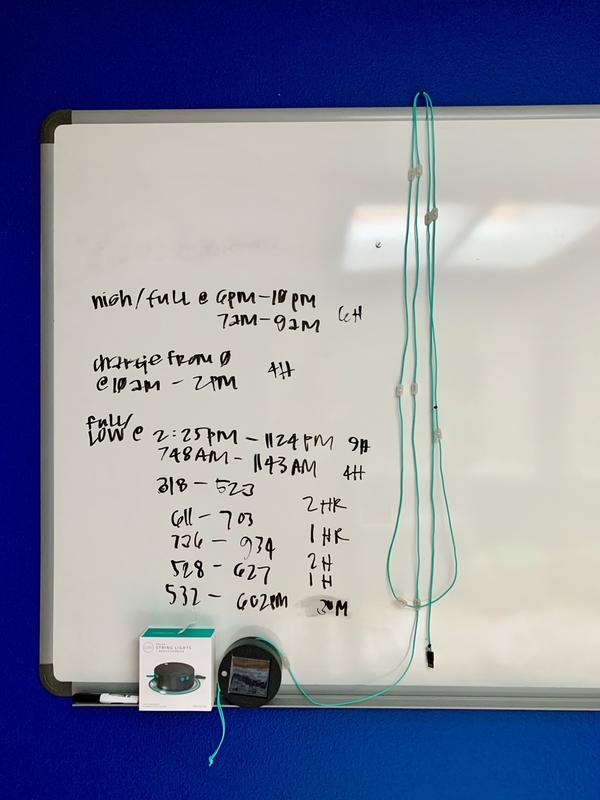 high/full @ 6PM-10PM
7AM-9AM 6H
charge from 0
@10AM - 2PM 4H
full/
LOW @ 2:25PM - 1124PM 9H
748AM - 1143AM 4H
318 - 523 2HR
611 - 703 1HR
726 - 934 2H
528 - 627 1H
532 - 602PM 30M
STRING LIGHTS